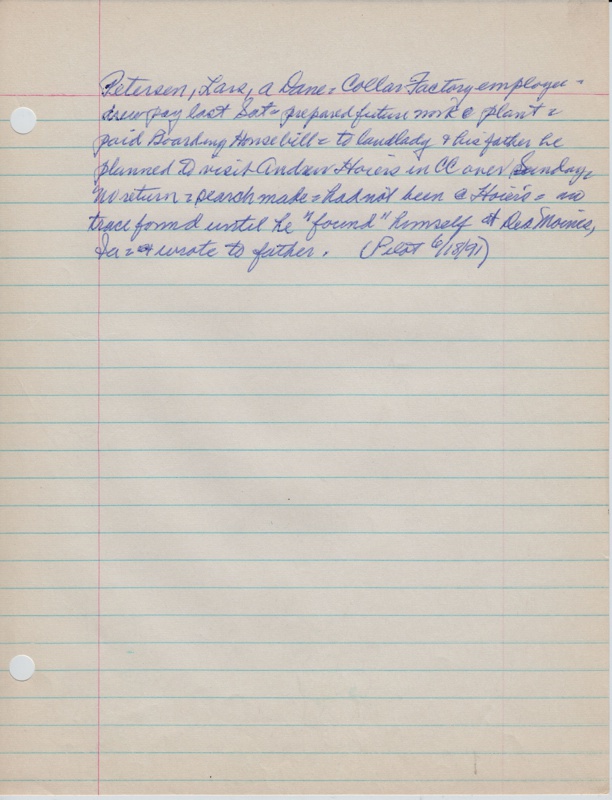 Petersen, Lars, a Dane = Collar Factory employee -
drew pay last Sat = prepared future work @ plant =
paid Boarding House bill = to landlady & his father he
planned to visit Andrew Hoiers in CC over Sunday =
No return = search made = had not been @ Hoiers = no
trace found until he "found" himself at Des Moines,
Ia = & wrote to father. (Pilot 6/18/91)